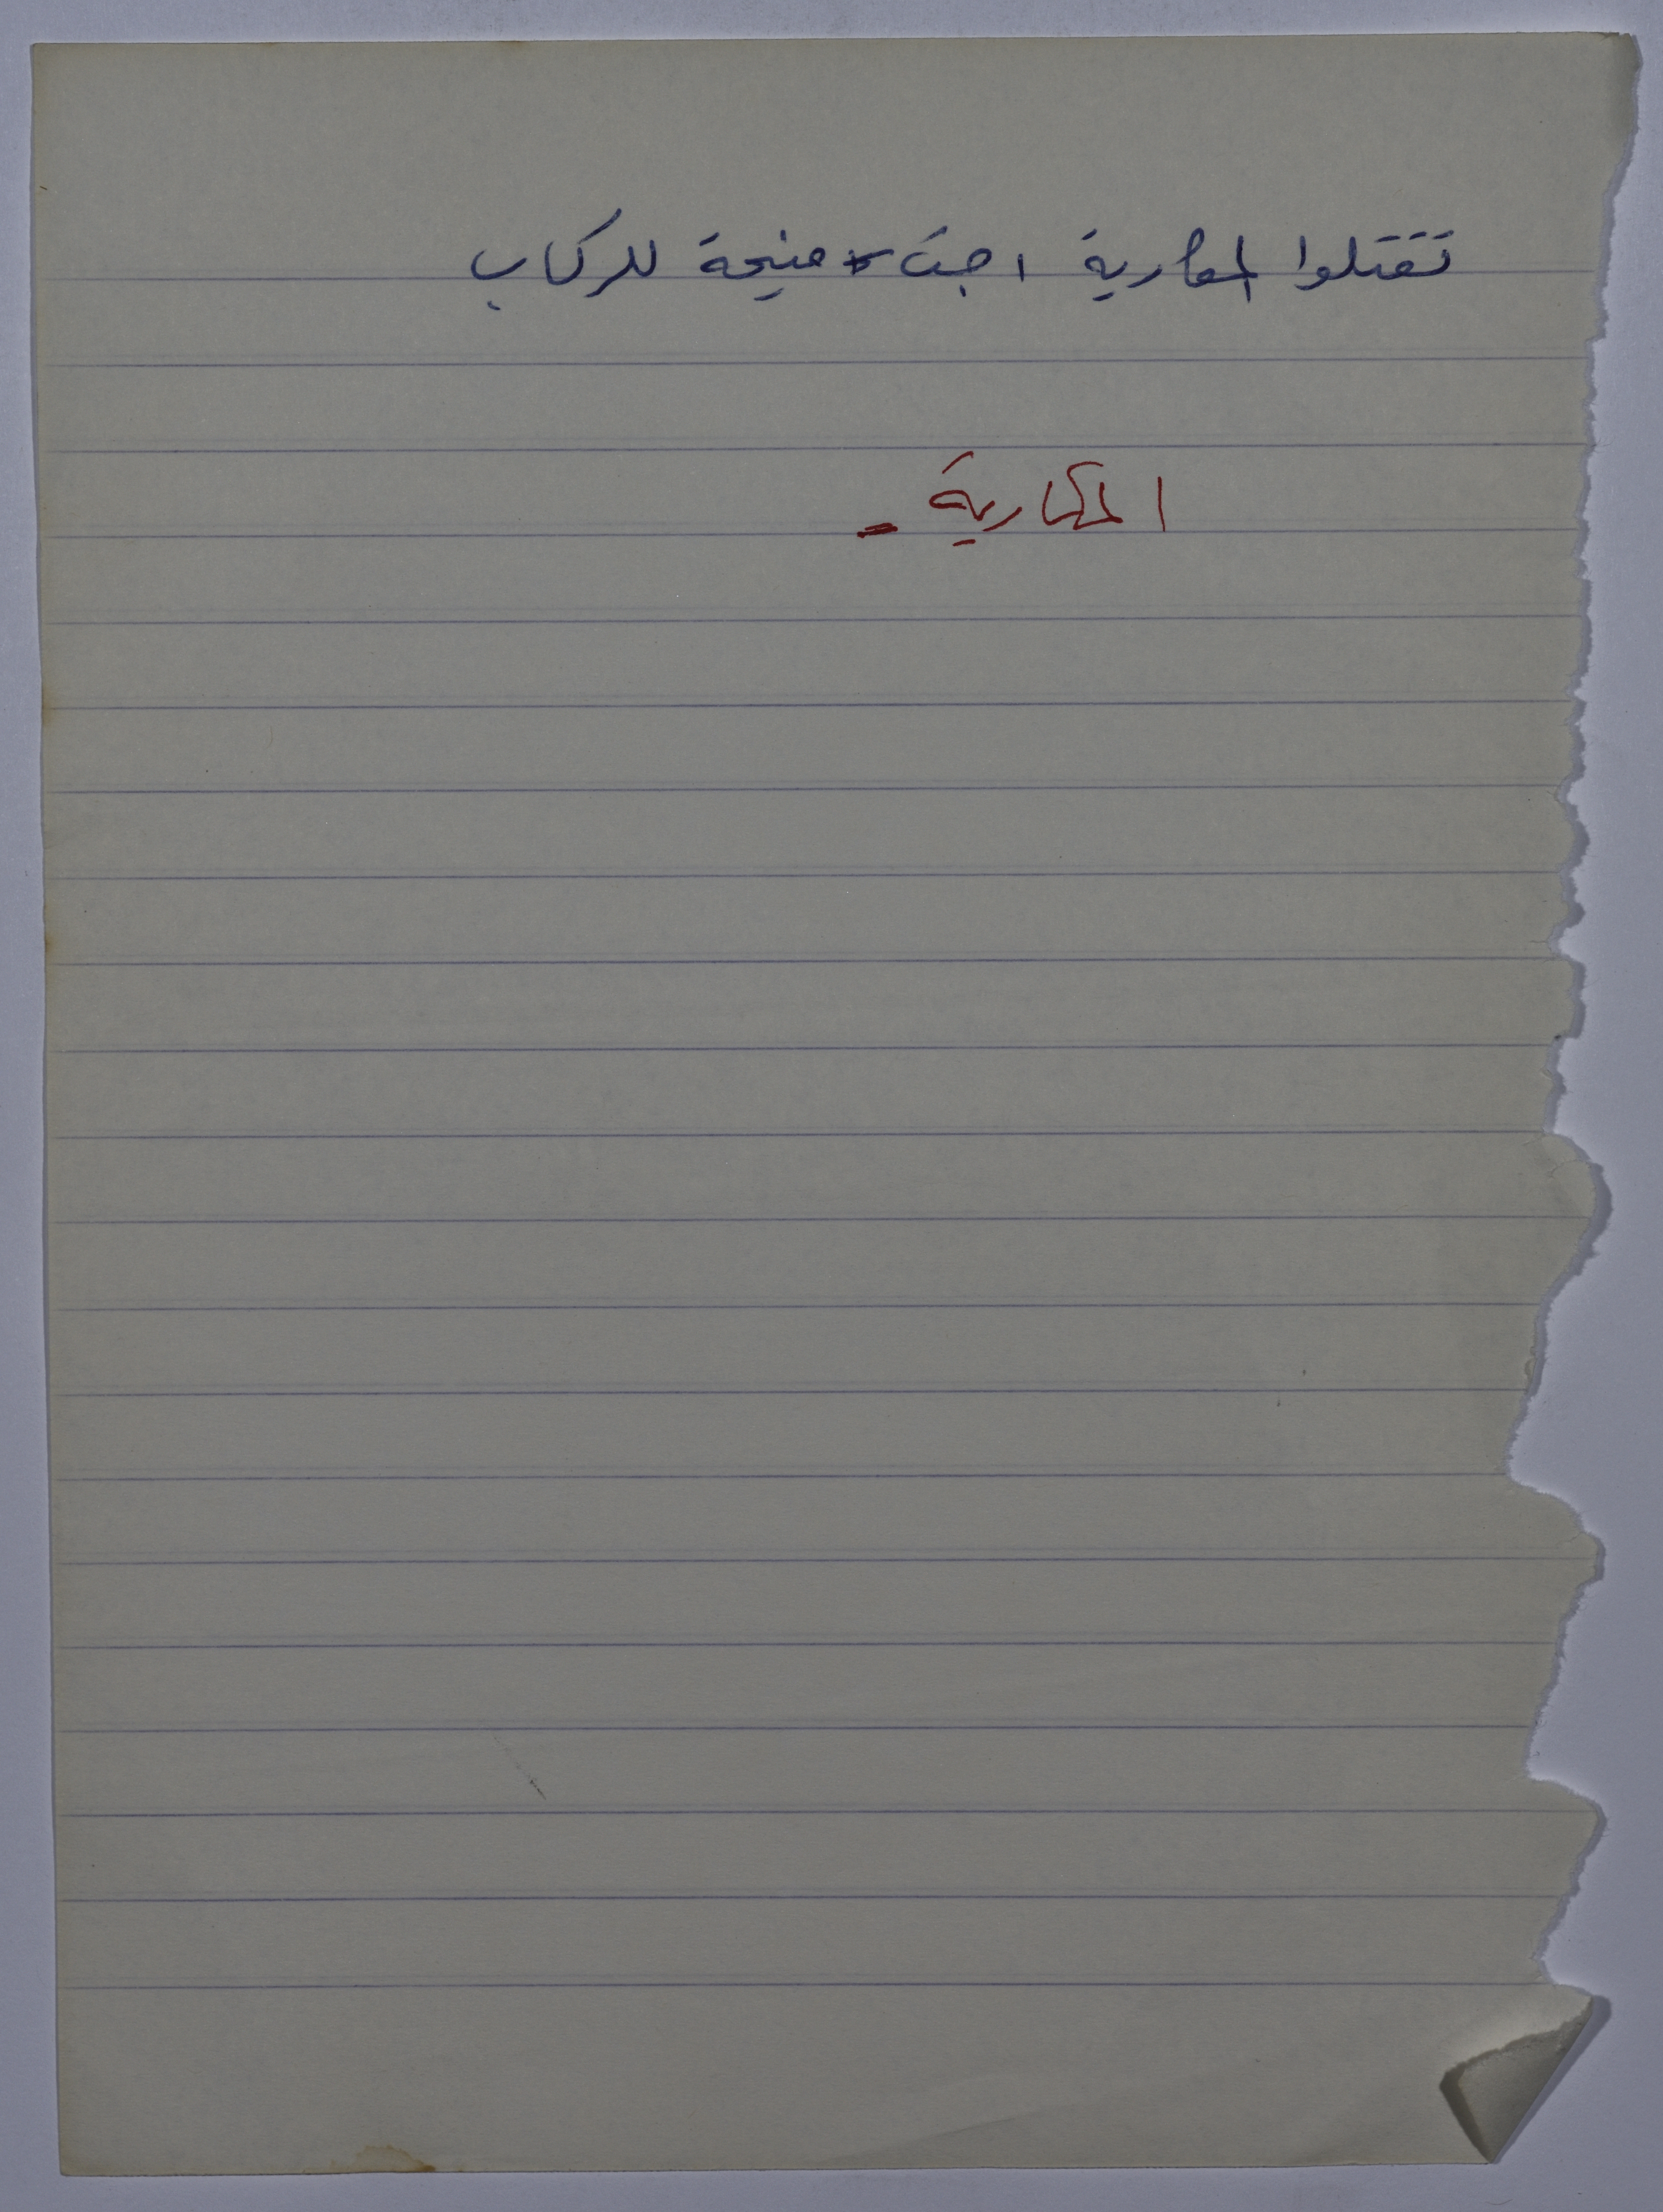 تقتلوا المكارية اجت منيحة للركاب
المكارية -